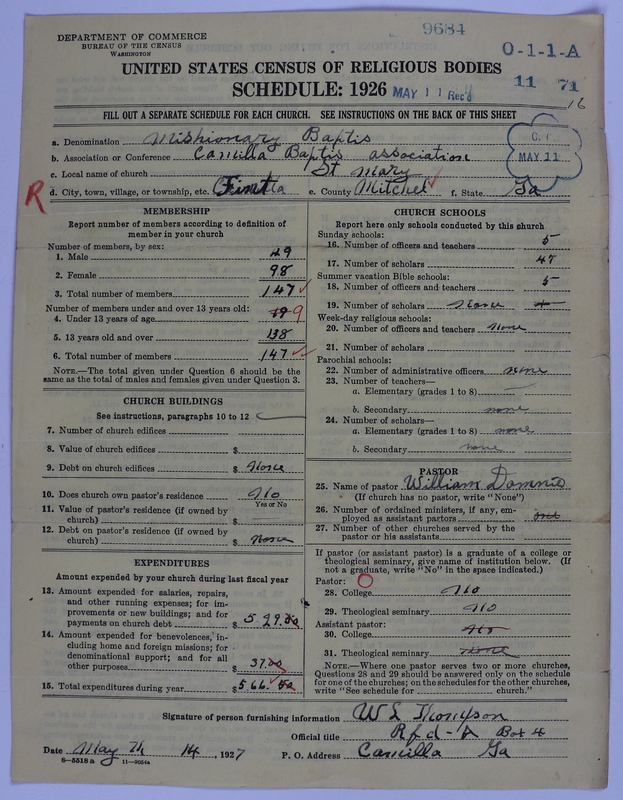 9684
DEPARTMENT OF COMMERCE
BUREAU OF THE CENSUS
WASHINGTON
O-1-1-A
UNITED STATES CENSUS OF RELIGIOUS BODIES
SCHEDULE: 1926
MAY 11 Rec'd
11 71
16
FILL OUT A SEPARATE SCHEDULE FOR EACH CHURCH. SEE INSTRUCTIONS ON THE BACK OF THIS SHEET
a. Denomination Mishionary Baptis
b. Association or Conference Camilla Baptis association
c. Local name of church St Mary
MAY 11
R
d. City, town, village, or township, etc. e. County Mitchel f. State Ga
MEMBERSHIP
Report number of members according to definition of
member in your church
Number of members, by sex:
1. Male 49
2. Female 98
3. Total number of members 147
Number of members under and over 13 years old:
4. Under 13 years of age 19 9
5. 13 years old and over 138
6. Total number of members 147
NOTE.—The total given under Question 6 should be
the same as the total of males and females given under Question 3.
CHURCH BUILDINGS
See instructions, paragraphs 10 to 12
7. Number of church edifices
8. Value of church edifices $
9. Debt on church edifices $ None
10. Does church own pastor's residence No
Yes or No
11. Value of pastor's residence (if owned by
church) $
12. Debt on pastor's residence (if owned by
church) $ None
EXPENDITURES
Amount expended by your church during last fiscal year
13. Amount expended for salaries, repairs,
and other running expenses; for im-
provements or new buildings; and for
payments on church debt $ 529.00
14. Amount expended for benevolences, in-
cluding home and foreign missions; for
denominational support; and for all
other purposes $ 37.00
15. Total expenditures during year $ 566.50
CHURCH SCHOOLS
Report here only schools conducted by this church
Sunday schools:
16. Number of officers and teachers 5
17. Number of scholars 47
Summer vacation Bible schools:
18. Number of officers and teachers 5
19. Number of scholars None
Week-day religious schools:
20. Number of officers and teachers None
21. Number of scholars
Parochial schools:
22. Number of administrative officers none
23. Number of teachers—
a. Elementary (grades 1 to 8)
b. Secondary none
24. Number of scholars—
a. Elementary (grades 1 to 8) none
b. Secondary none
PASTOR
25. Name of pastor William
(If church has no pastor, write "None")
26. Number of ordained ministers, if any, em-
ployed as assistant pastors
27. Number of other churches served by the
pastor or his assistants
If pastor (or assistant pastor) is a graduate of a college or
theological seminary, give name of institution below. (If
not a graduate, write "No" in the space indicated.)
Pastor:
28. College No
29. Theological seminary No
Assistant pastor:
30. College No
31. Theological seminary None
NOTE.—Where one pastor serves two or more churches,
Questions 28 and 29 should be answered only on the schedule
for one of the churches; on the schedules for the other churches,
write "See schedule for church."
Signature of person furnishing information W L Thompson
Official title Rfd - A Box 4
Date May Th 14, 1927 P. O. Address Camilla Ga
6—5518 a 11—9054a